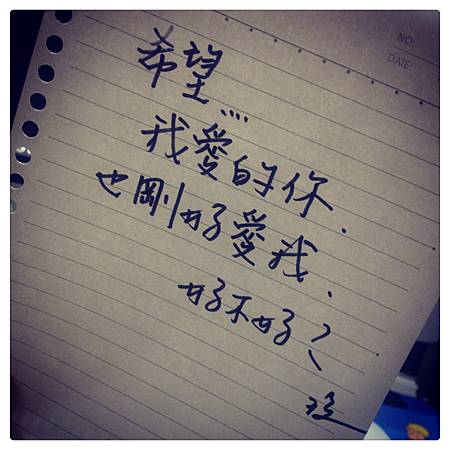 NO:
DATE:
希望....
我愛的你、
也剛好愛我、
好不好？